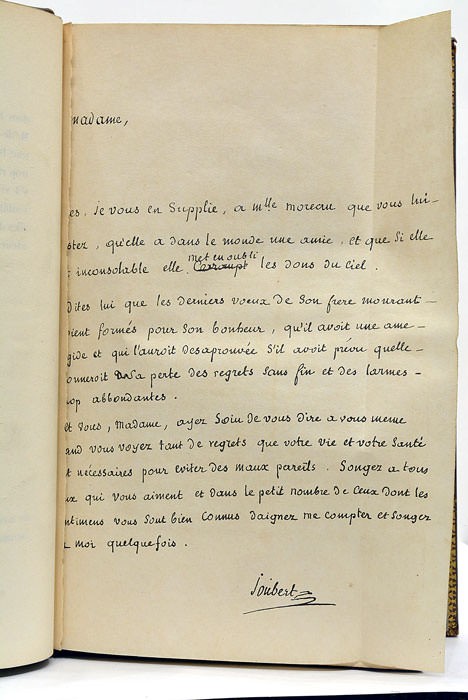 madame,
es, je vous en Supplie, a mlle moreau que vous lui-
stez, qu'elle a dans le monde une amie, et que Si elle
t inconsolable elle met en oubli les dons du Ciel.
Dites lui que les derniers voeux de Son frere mourant-
oient formés pour Son bonheur, qu'il avoit une ame-
gide et qui l'auroit desaprouvée S'il avoit prévu quelle-
onneroit a Sa perte des regrets Sans fin et des larmes-
op abbondantes.
et vous, Madame, ayez Soin de vous dire a vous meme
and vous voyez tant de regrets que votre vie et votre Santé
t nécessaires pour eviter des maux pareils. Songez a tous
ux qui vous aiment et dans le petit nombre de Ceux dont les
ntimens vous Sont bien Connus daignez me compter et Songez
moi quelquefois.
Joubert